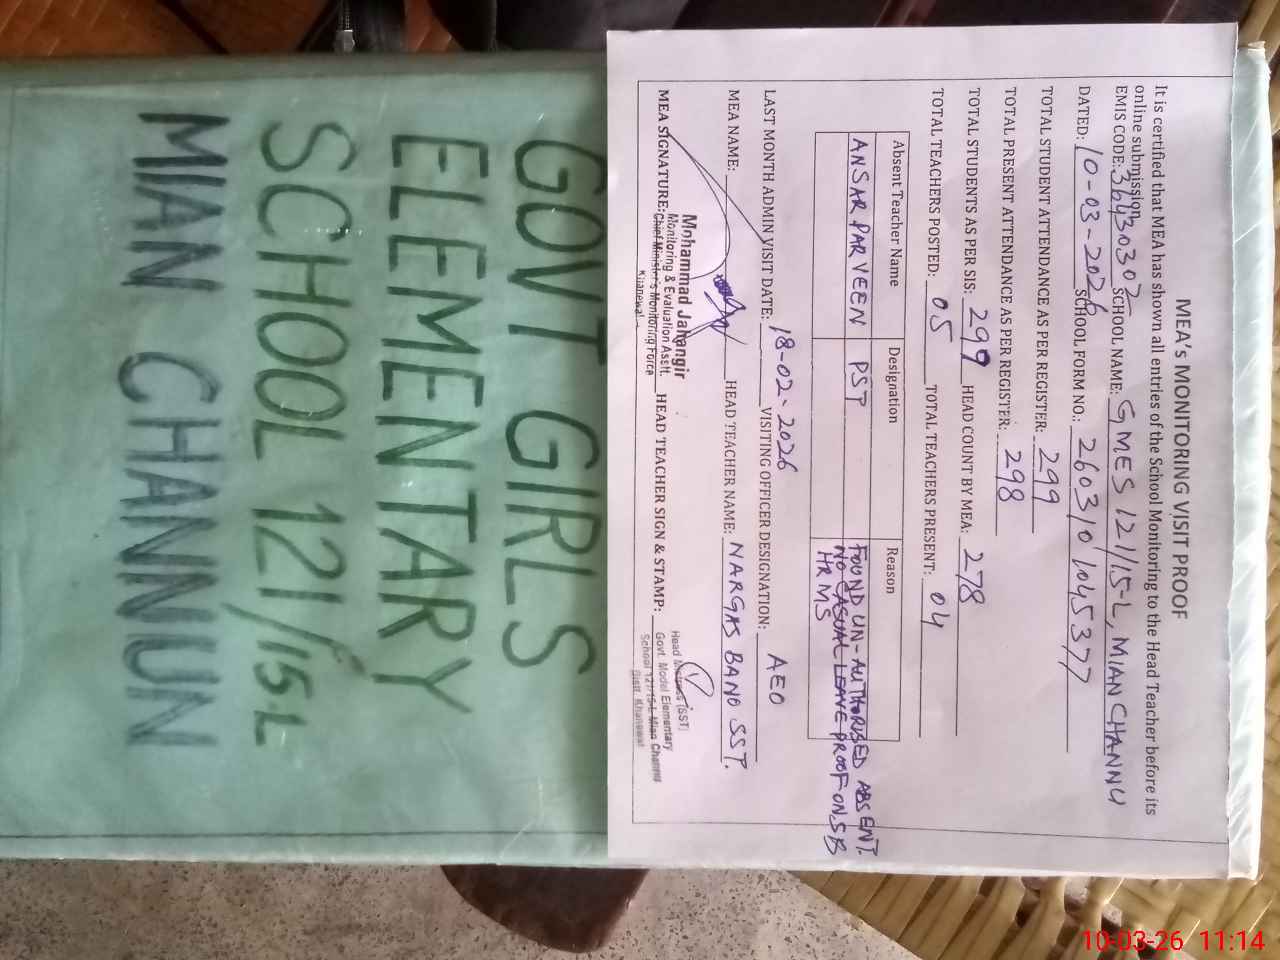 MEA's MONITORING VISIT PROOF
It is certified that MEA has shown all entries of the School Monitoring to the Head Teacher before its
online submission.
EMIS CODE: 36430302 SCHOOL NAME: GMES 121/15-L, MIAN CHANNU
DATED: 10-03-2026 SCHOOL FORM NO.: 2603101045377
TOTAL STUDENT ATTENDANCE AS PER REGISTER: 299
TOTAL PRESENT ATTENDANCE AS PER REGISTER: 298
TOTAL STUDENTS AS PER SIS: 299 HEAD COUNT BY MEA: 278
TOTAL TEACHERS POSTED: 05 TOTAL TEACHERS PRESENT: 04
Absent Teacher Name Designation Reason
ANSAR PARVEEN PST FOUND UN-AUTHORISED ABSENT.
NO CASUAL LEAVE PROOF ON SB
HRMS
LAST MONTH ADMIN VISIT DATE: 18-02-2026 VISITING OFFICER DESIGNATION: AEO
MEA NAME: HEAD TEACHER NAME: NARGAS BANO SST.
MEA SIGNATURE: HEAD TEACHER SIGN & STAMP:
Mohammad Jahangir
Monitoring & Evaluation Asstt.
Chief Minister's Monitoring Force
Khanewal
Head Mistress (SST)
Govt. Model Elementary
School 121/15-L Mian Channu
Distt. Khanewal
GOVT GIRLS
ELEMENTARY
SCHOOL 121/15-L
MIAN CHANNUN
10-03-26 11:14